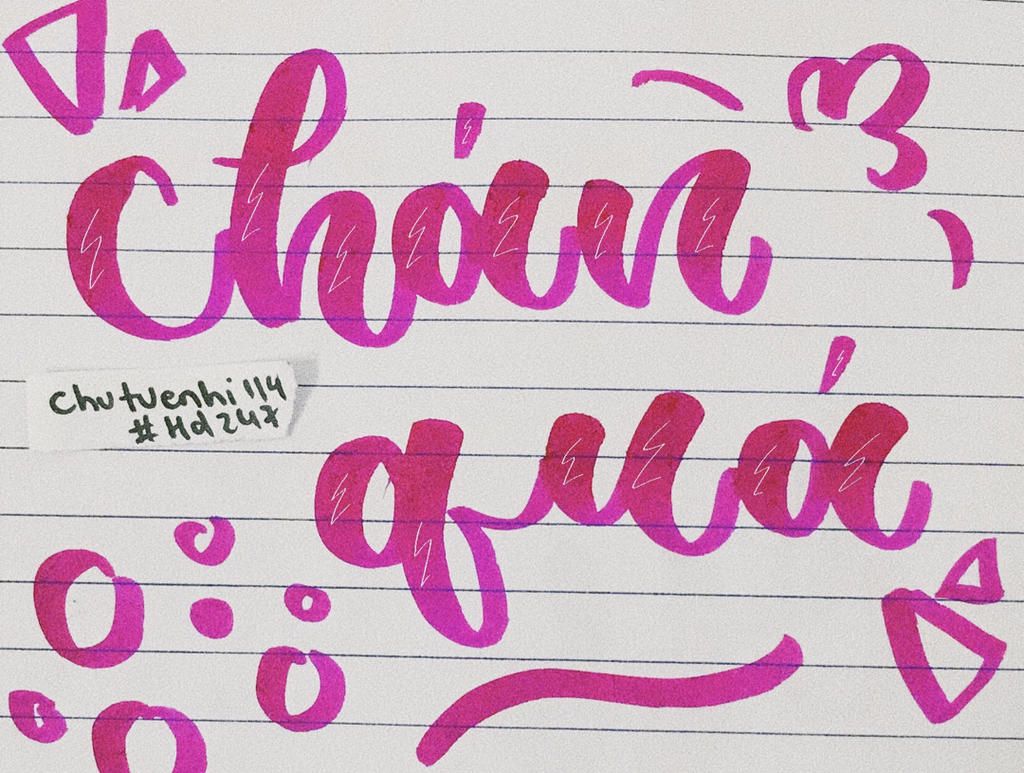 chán
chutuenhi114
#Hd247
quá